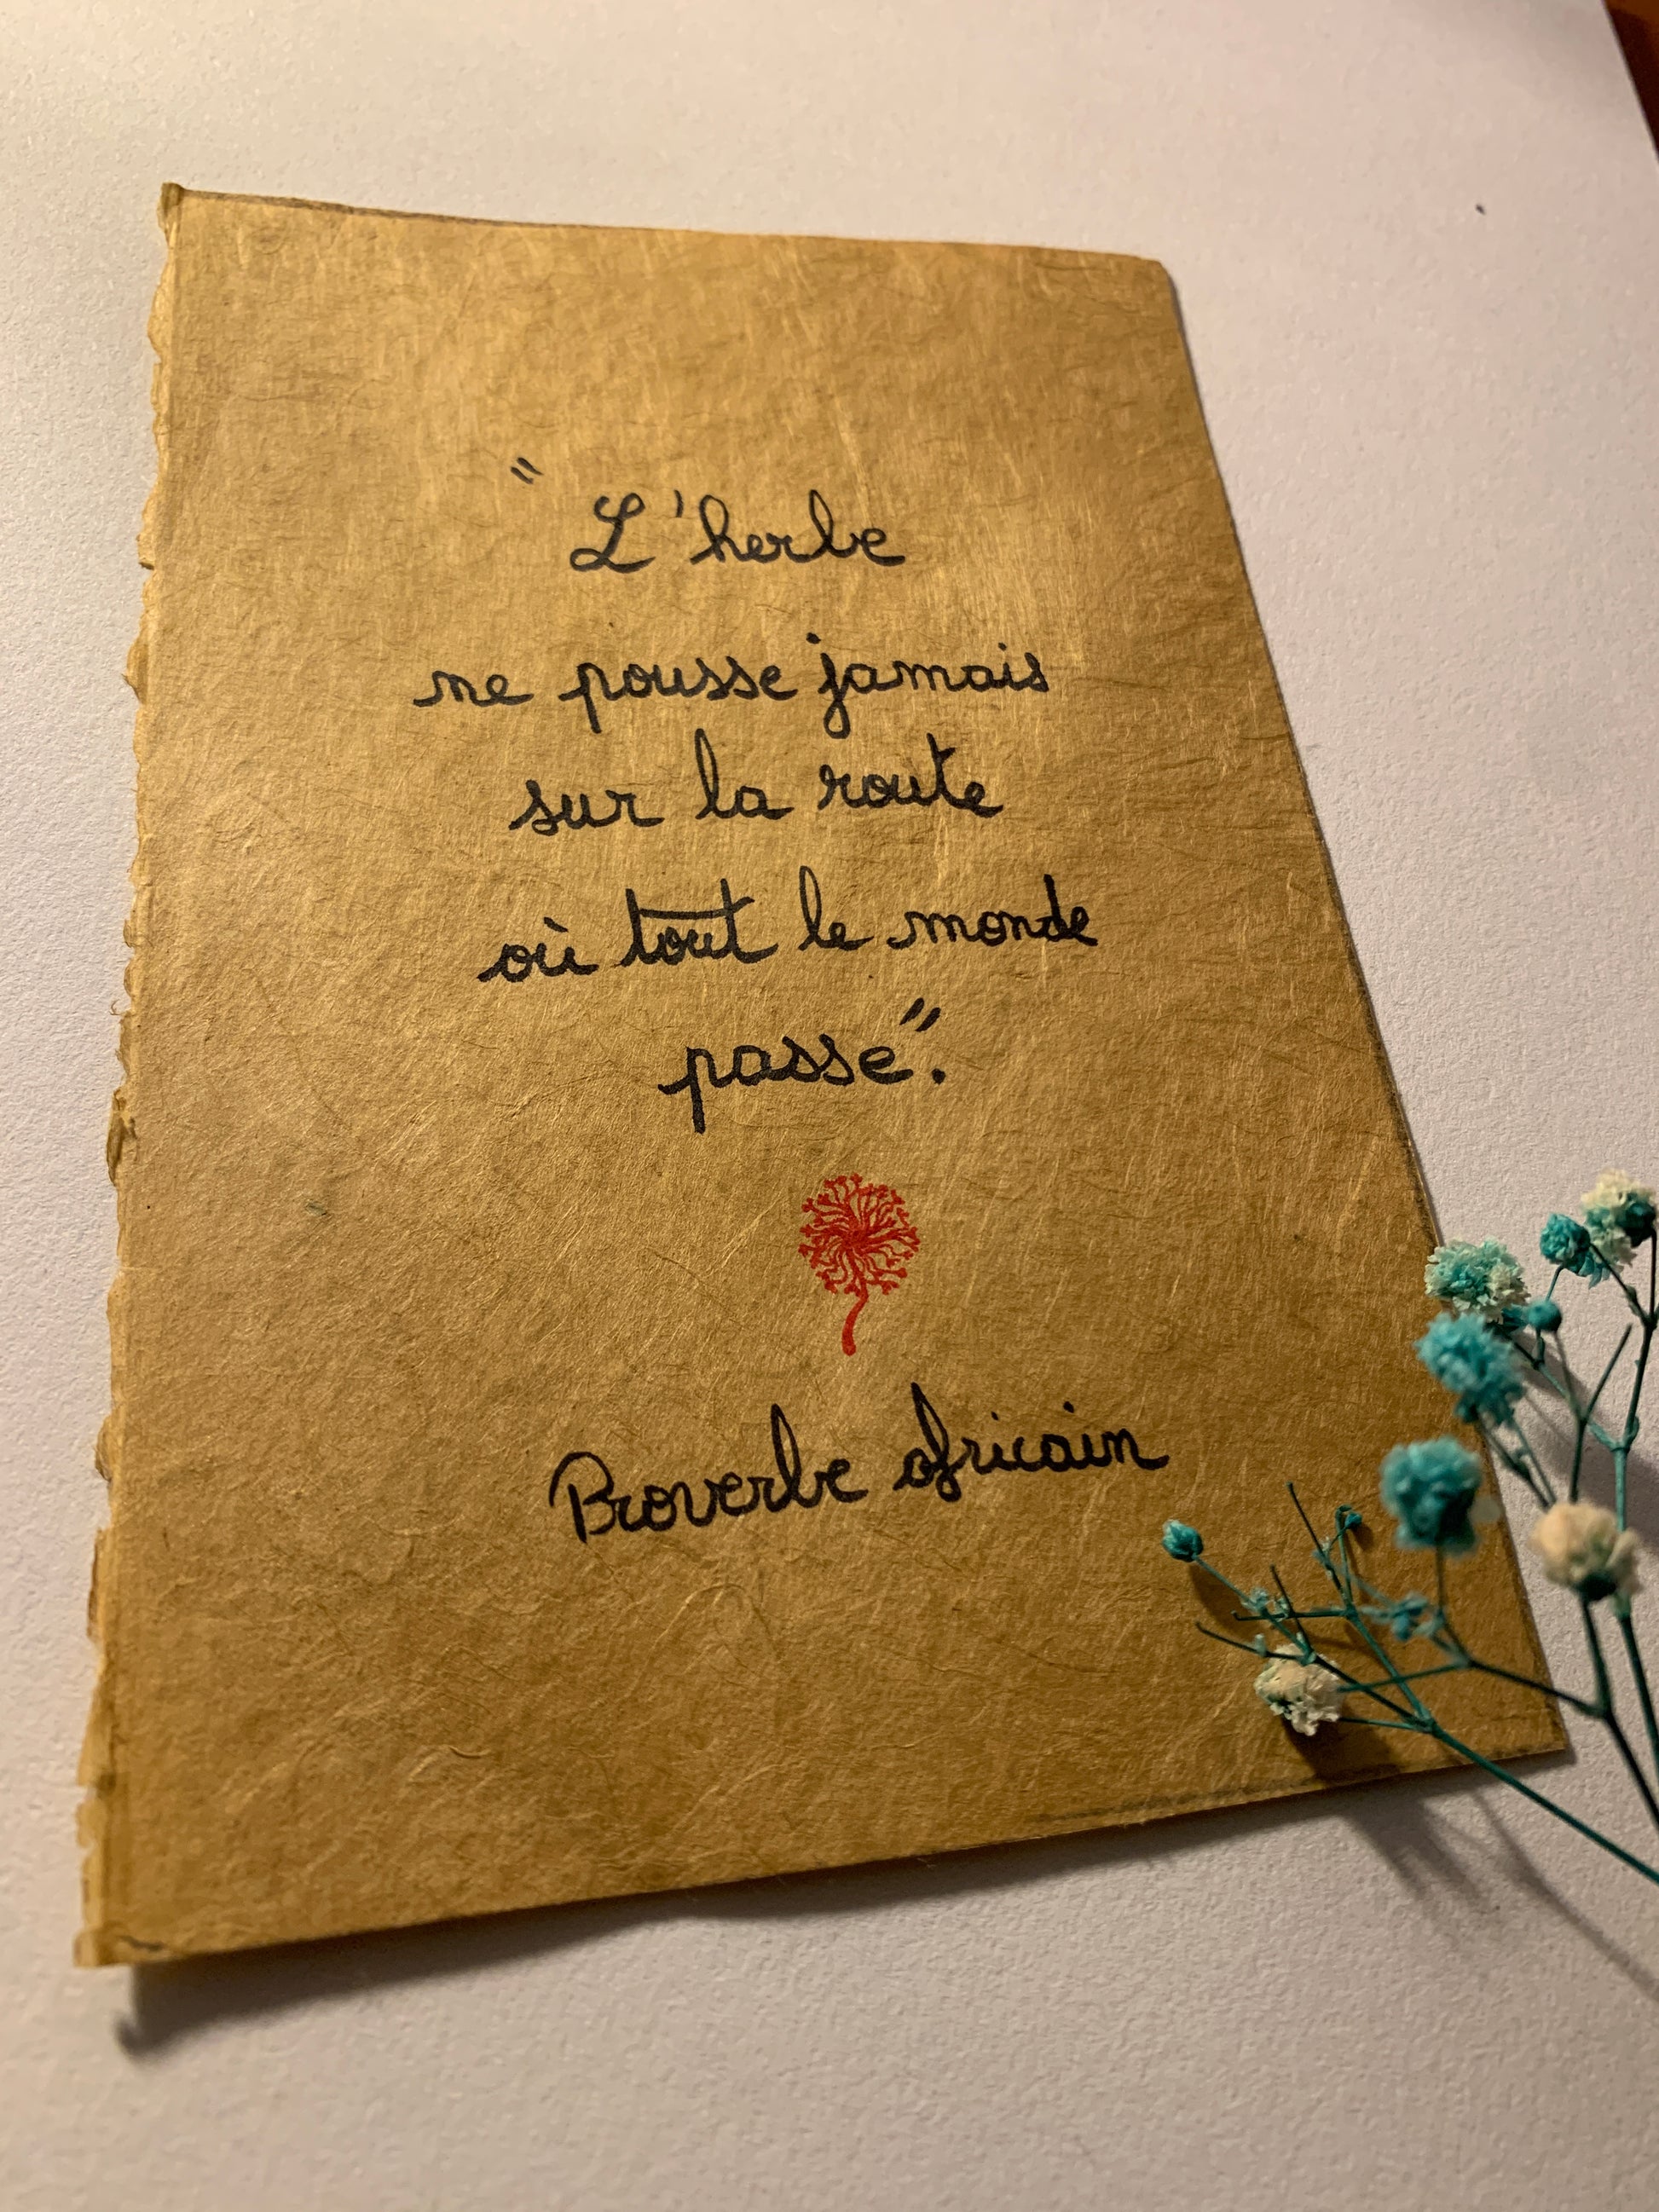 " L'herbe
ne pousse jamais
sur la route
où tout le monde
passe".
Proverbe africain